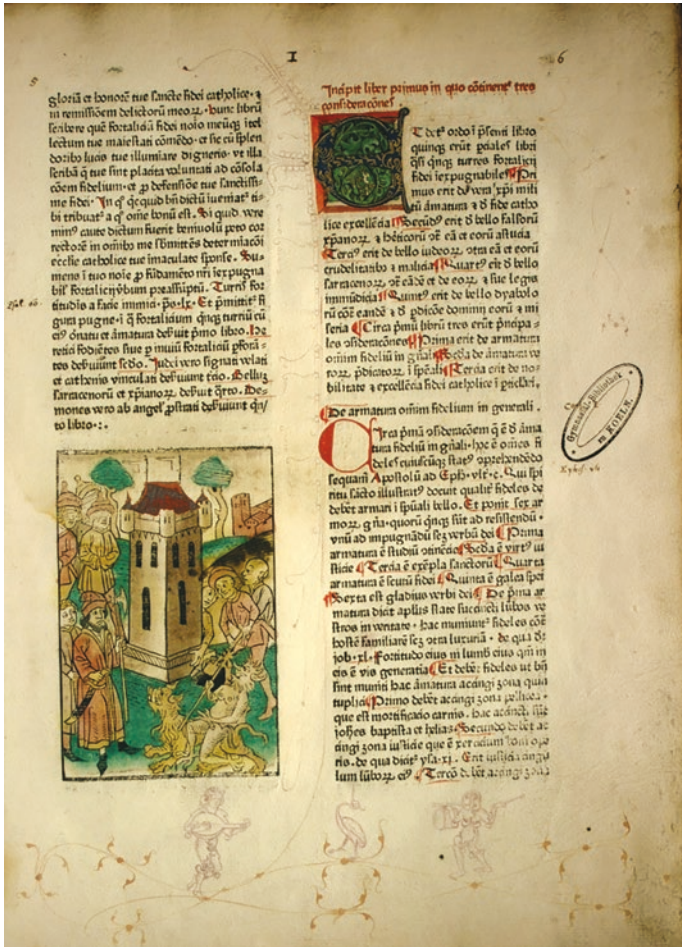 I
5
6
gloriā et honorē tue sancte fidei catholice· ⁊
in remissiōem delictorū meoꝝ· hunc librū
scribere quē fortaliciū fidei nolo meūqꝫ itel
lectum tue maiestati cōmēdo· et sic cū splen
doribꝰ lucis tue illumiare digneris· vt illa
scribā q̄ tue sint placita volūtati ad cōsola
cōem fidelium· et ꝓ defensiōe tue sanctissi-
me fidei· In qͦ q̇cquid bn̄ dictū iueniatᷣ ti-
bi tribuatᷣ a qͦ ome bonū est· Si quid vero
minꝰ caute dictum fuerit beniuolū peto cor
rectorē in omībꝰ me sb̄mittēs determiacōi
ecclie catholice tue imaculate sponse· Su-
mens i tuo noīe ꝓ fūdamēto nr̄i iexpugna
bilꝭ fortalicij ṽbum preassūptū· Turris for
titudis a facie inimici· ps̄·lx· Et ꝓmittitᷣ fi
gura pugne· i q̄ fortalicium qn̄qꝫ turriū cū
eiꝰ ōnatu et āmatura deb̄uit pͥmo libro· He
retici fodiētes siue ꝑ imiū fortaliciū ꝑforā-
tes deb̄uiunt sedō· Iudei vero signati velati
et cathenis vinculati deb̄uiunt t̄cio· Bellum
sarracenorū et xp̄ianoꝝ deb̄uit q̄rto· De-
mones vero ab angelꝭ ꝓstrati deb̄uiunt qn̄
to libro·:·
Incipit liber primus in quo cōtinentᷣ tres
cōsideracōnes
T detᷣ ordo i p̄senti libro
quinqꝫ erūt ꝑciales libri
qͣsi qn̄qꝫ turres fortalicij
fidei iexpugnabiles· Pri
mus erit dꝫ vera xp̄i mili
tū āmatura ⁊ đ fide catho
lice excellēcia· Secūdꝰ erit đ bello falsorū
xp̄ianoꝝ ⁊ hēticorū ꝯt̄ eā et eorū astucia
Terciꝰ erit de bello iudeoꝝ ꝯtra eā et eorū
crudelitatibꝰ ⁊ malicia· Quartꝰ erit đ bello
sarracenoꝝ ꝯt̄ eādē et de eoꝝ ⁊ sue legis
immūdicia· Quintꝰ erit de bello dyabolo
rū cōt̄ eandē ⁊ đ ꝓdicōe domini eorū ⁊ mi
seria Circa pͥmū librū tres erūt pͥncipa-
les ꝯsideracōnes· Prima erit de armatura
omim fideliū in gn̄ali· Sc̄da de āmatura ve
roꝝ ꝓdicatoꝝ i sp̄eāli· Tercia erit de no-
bilitate ⁊ excellēcia fidei catholice i ꝑticlari·
De armatura omīm fidelium in generali·
Irca pͥmā ꝯsideracōem q̄ ē đ āma
tura fideliū in gn̄ali· hoc ē omēs fi
deles cuiuscūqꝫ statꝰ ꝯprehendēdo
sequam̄ Apostolū ad Eph̄·vltᷣ·c· Qui spi
ritu sācto illustratꝰ docuit qualitᷣ fideles de
debēt armari i spūali bello· Et ponit sex ar
moꝝ gn̄a· quorū qn̄qꝫ sūt ad resistendū·
vnū ad impugnādū scꝫ verbū dei Prima
armatura ē studiū ꝯtinēcie· Sc̄da ē virtꝰ iu
sticie Tercia ē exēpla sanctorū Quarta
armatura ē scutū fidei Quinta ē galea spei
Sexta est gladius verbi dei De pͥma ar
matura dicit apl̄us state succincti lūbos ve
stros in veritate· hac muniunt fideles cōt̄
hostē familiarē scꝫ ꝯtra luxuriā· de qua đr̄
job·xl· Fortitudo eiꝰ in lumb eiꝰ qm̄ in
eis ē vis generatia Et debēt fideles ut bn̄
sint muniti hac āmatura accingi zona qua
tuplici Primo debēt accingi zona pellicea·
que est mortificatio carnis· hac accincti sūt
joh̄es baptista et helias· Secundo debēt ac
cingi zona iusticie que ē xercicium boni ope
ris· de qua dicitᷣ ysa·xi· Erit iusticia cingu
lum lūboꝝ eiꝰ Tercō debēt accingi zona
Gymnasial Bibliothek
zu KOELN